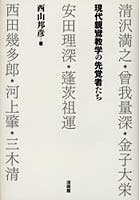 現代親鸞教学の先覚者たち
西山邦彦・著
清沢満之・曾我量深・金子大栄
安田理深・蓬茨祖運
西田幾多郎・河上肇・三木清
法蔵館